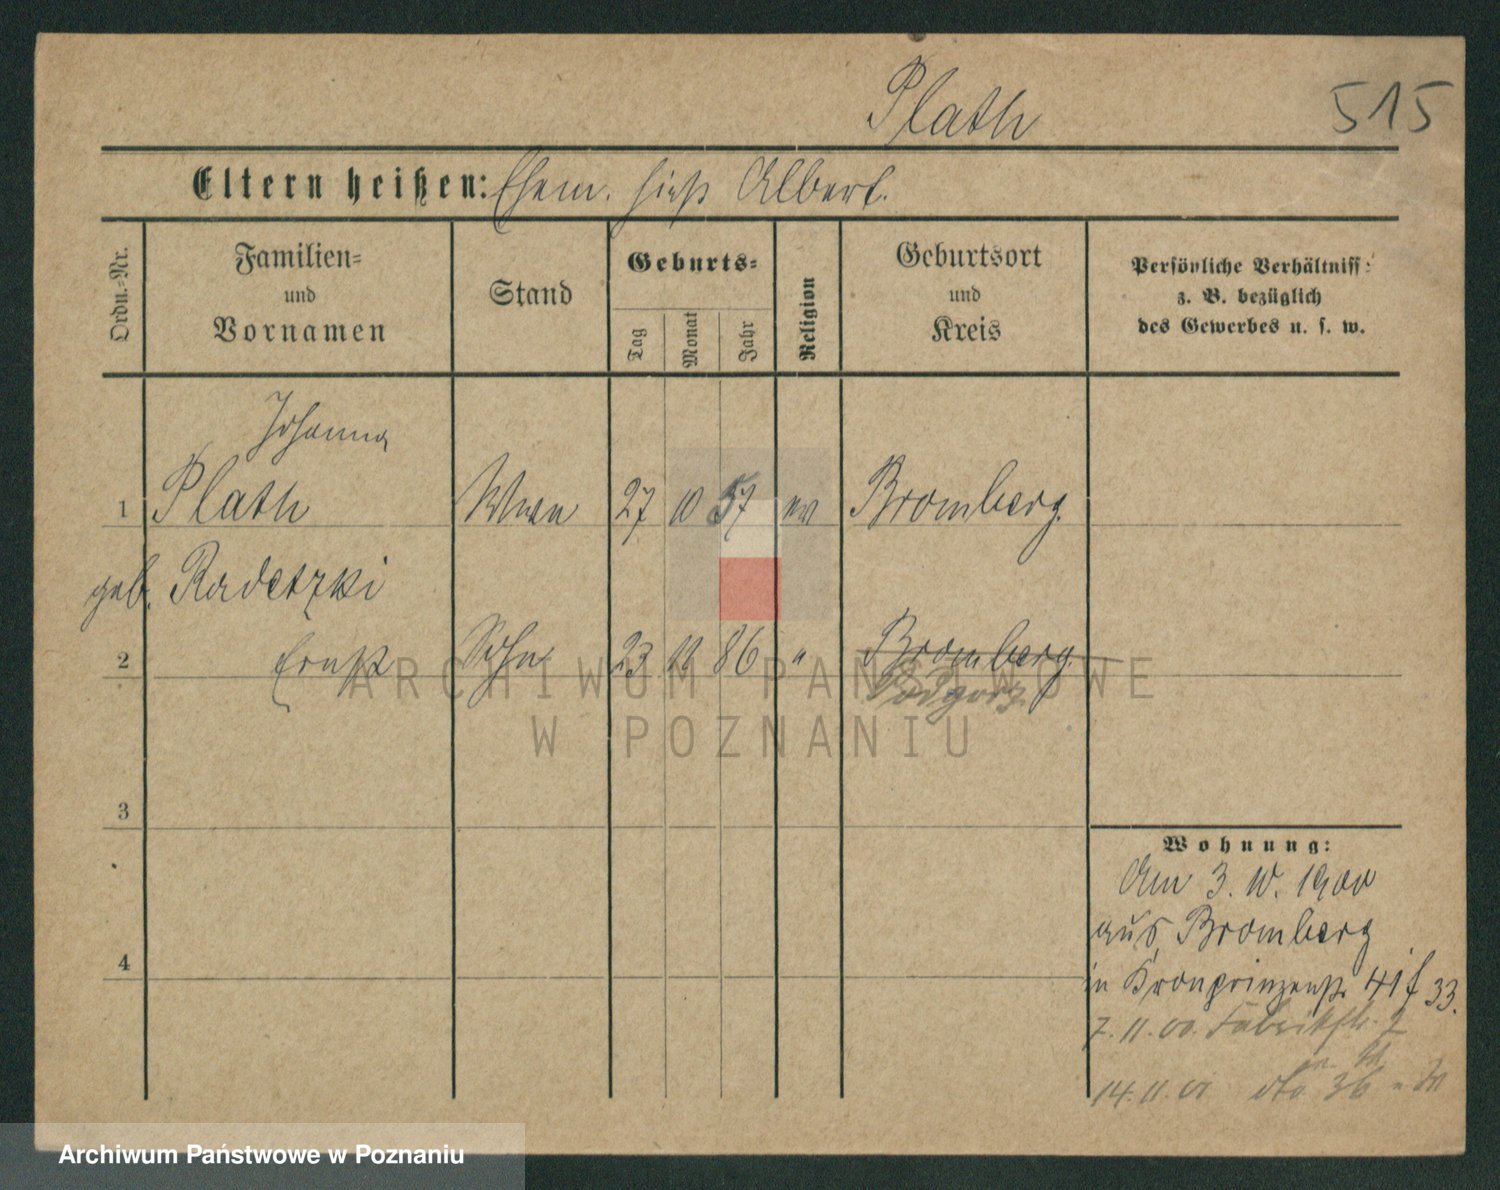 Plath
515
Eltern heißen: Ehem. hieß Albert.
Ordn.-Nr.
Familien-
und
Vornamen
Stand
Geburts-
Tag
Monat
Jahr
Religion
Geburtsort
und
Kreis
Persönliche Verhältniss:
z. B. bezüglich
des Gewerbes u. s. w.
Johanna
1 Plath Wwe 27 10 57 ev Bromberg
geb. Radetzki
2 Ernst Sohn 23 11 86 " Bromberg
Podgorz
3
4
Wohnung:
Am 3. 10. 1900
aus Bromberg
in Kronprinzenstr. 41 f 33.
7. 11. 00. Fabrikstr. 2
14. 11. 01 dto 36
ARCHIWUM PAŃSTWOWE
W POZNANIU
Archiwum Państwowe w Poznaniu